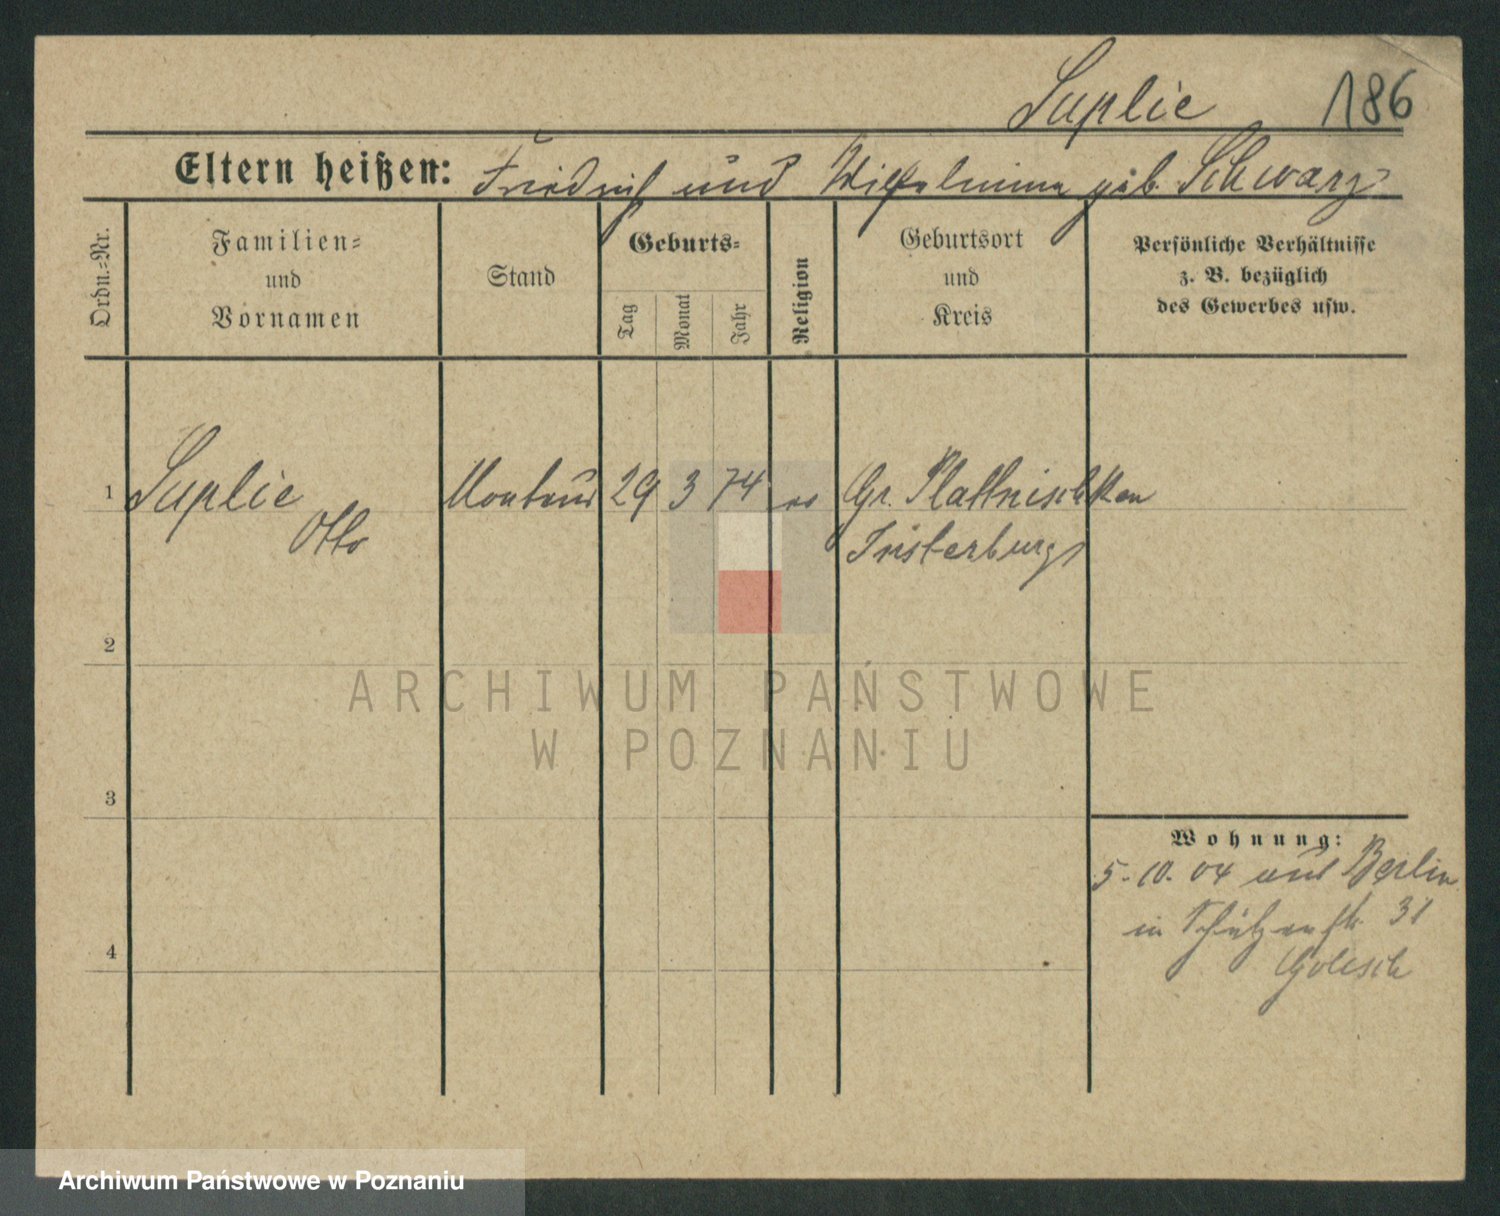 Suplie 186
Eltern heißen: Friedrich und Wilhelmine geb. Schwarz
Ordn.-Nr.
Familien-
und
Vornamen
Stand
Geburts-
Tag
Monat
Jahr
Religion
Geburtsort
und
Kreis
Persönliche Verhältnisse
z. B. bezüglich
des Gewerbes usw.
1 Suplie Monteur 29 3 74 ev Gr. Plattnischken
Otto Insterburg
2
ARCHIWUM PAŃSTWOWE
W POZNANIU
3
Wohnung:
5. 10. 04 aus Berlin
in Schützenstr. 31
4
Archiwum Państwowe w Poznaniu